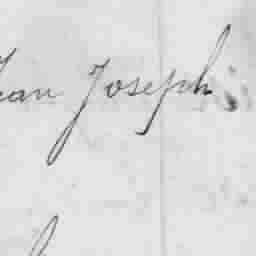 Jean Joseph